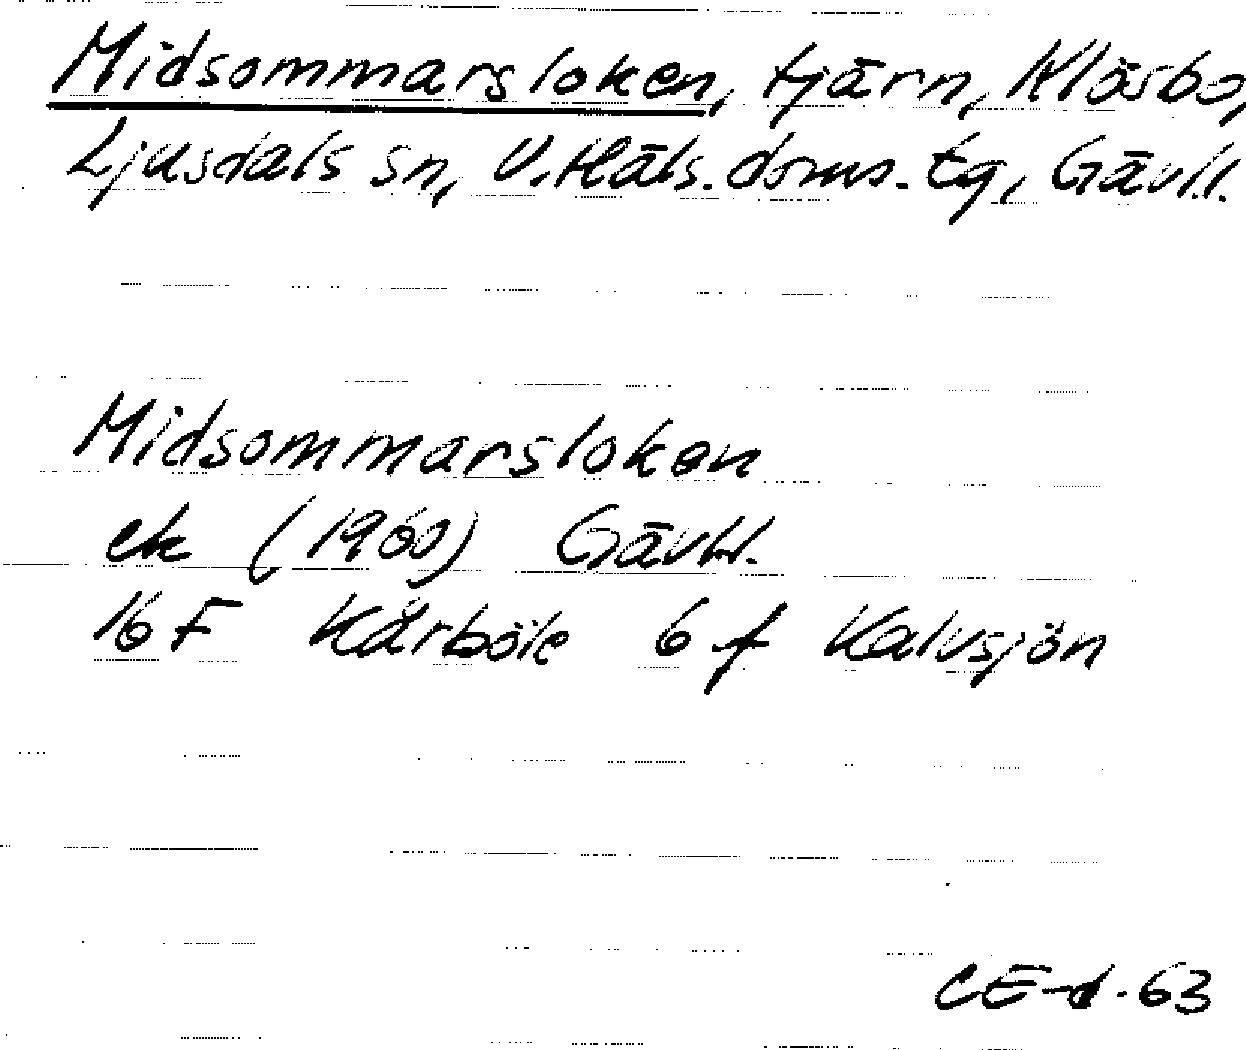 Midsommarsloken, tjärn, Klåsbo,
Ljusdals sn, V. Häls. doms. tg, Gävl.l.
Midsommarsloken
ek (1960) Gävl.l.
16 F Kårböle 6 f Kalvsjön
CE-d. 63